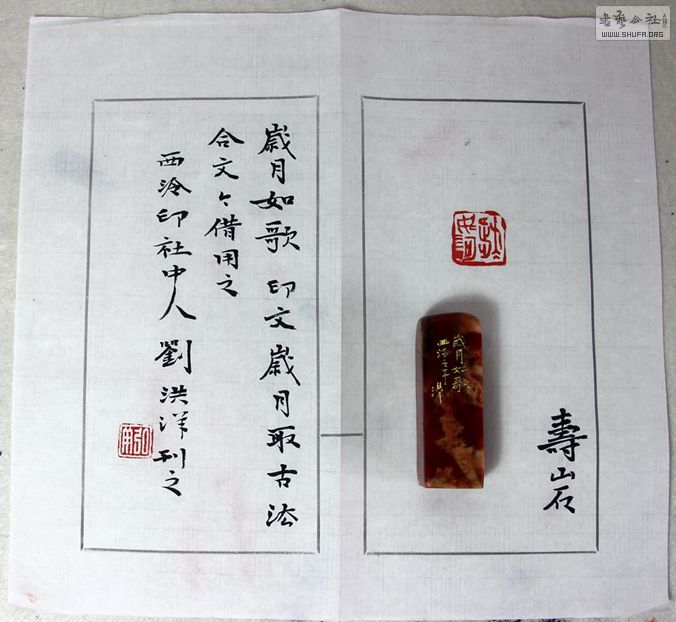 書藝公社
WWW.SHUFA.ORG
壽山石
歲月如歌
歲月如歌 印文歲月取古法
合文々借用之
西泠印社中人劉洪洋刊之